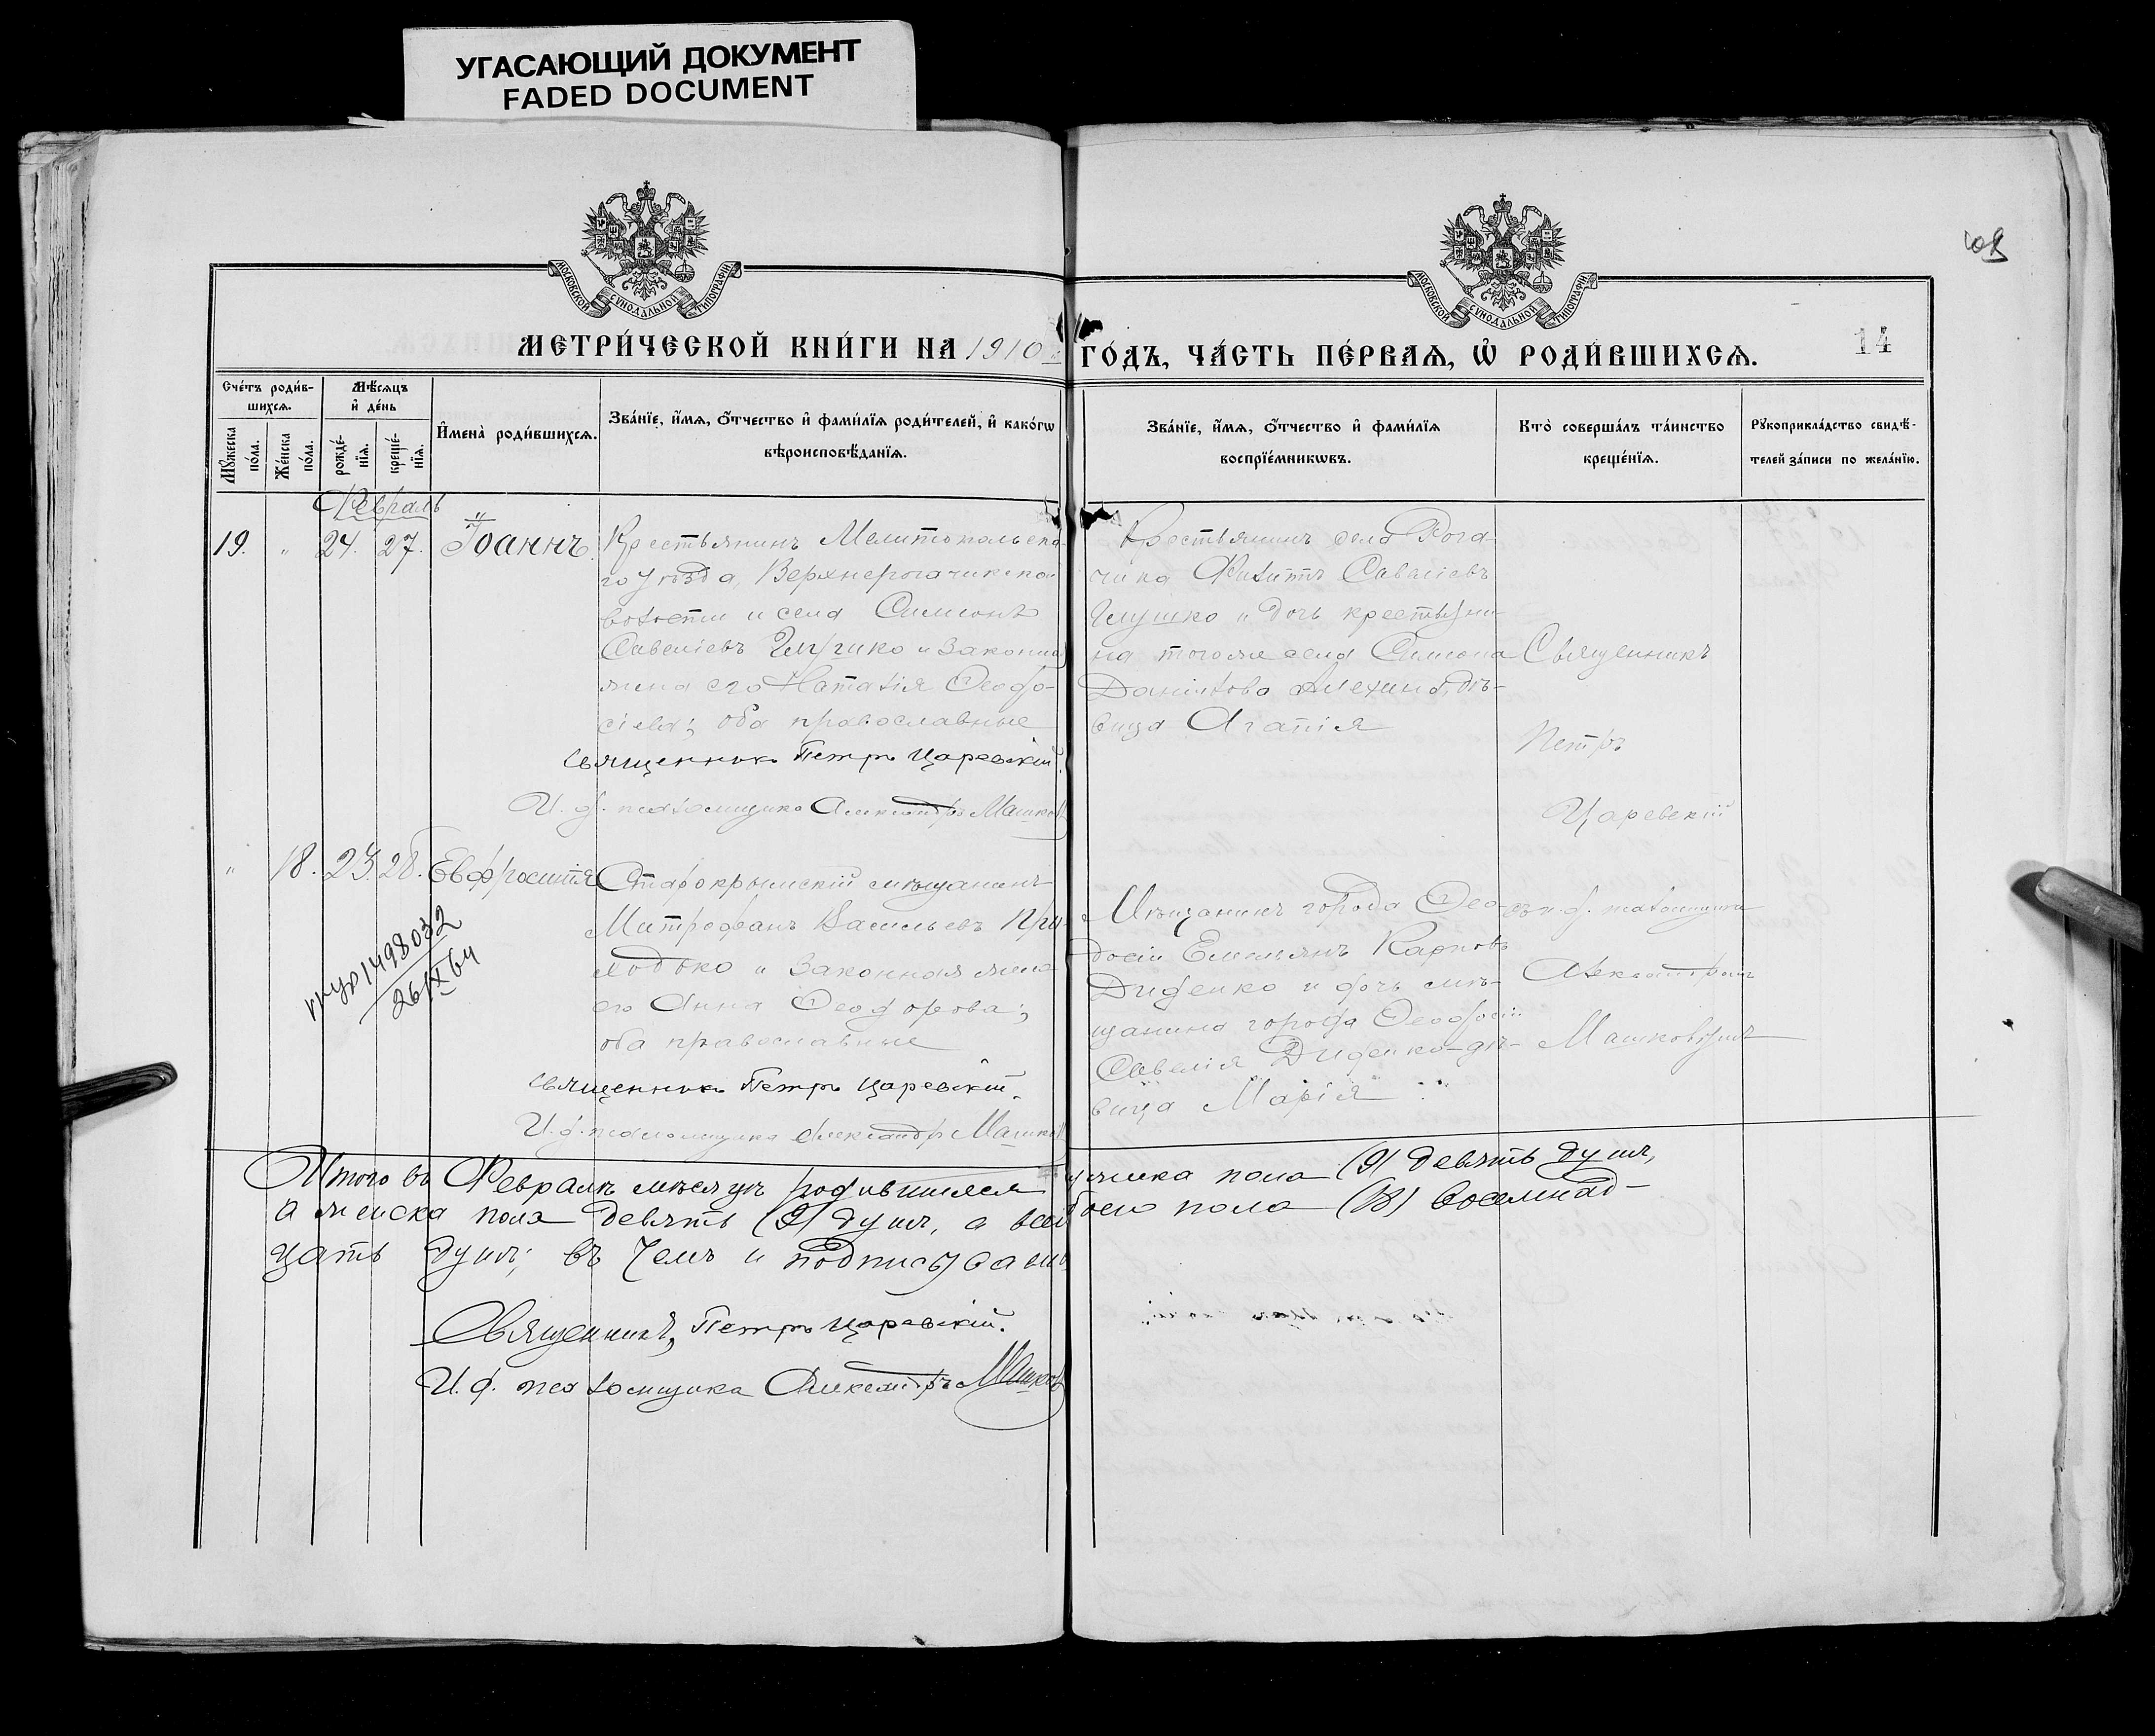 УГАСАЮЩИЙ ДОКУМЕНТ
FADED DOCUMENT
МОСКОВСКОЙ СѴНОДАЛЬНОЙ ТИПОГРАФІИ
МОСКОВСКОЙ СѴНОДАЛЬНОЙ ТИПОГРАФІИ
МЕТРИ́ЧЕСКОЙ КНИ́ГИ НА 1910 ГО́ДЪ, ЧА́СТЬ ПЕ́РВАѦ, Ѡ҆ РОДИ́ВШИХСѦ.
14
Сче́тъ роди́в-
шихсѧ.
Мꙋ́жеска по́ла.
Же́нска по́ла.
Мѣ́сѧцъ
и҆ де́нь
рожде́-
нїѧ.
креще́-
нїѧ.
И҆мена̀ роди́вшихсѧ.
Зва́нїе, и҆́мѧ, ѻ҆́тчество и҆ фами́лїѧ роди́телей, и҆ како́гѡ
вѣроисповѣ́данїѧ.
Зва́нїе, и҆́мѧ, ѻ҆́тчество и҆ фами́лїѧ
воспрїе́мникѡвъ.
Кто̀ соверша́лъ та́инство
креще́нїѧ.
Рꙋкоприкла́дство свидѣ́-
телей за́писи по жела́нїю.
Февраль
19. " 24. 27. Іоаннъ
Крестьянинъ Мелитопольска-
го уѣзда, Верхнерогачикской
волости и села Симеонъ
Савеліевъ Глушко и законная
жена его Наталія Ѳеодо-
сіева; оба православные
Священникъ Петръ Царевскій.
И. д. псаломщика Александръ Машков
Крестьянинъ села Рога-
чика Филиппъ Савеліевъ
Глушко и дочь крестьяни-
на тогоже села Симеона
Даніилова Алехина, дѣ-
вица Агапія
Священникъ
Петръ
Царевскій
" 18. 23. 28. Евфросинія
Старокрымскій мѣщанинъ
Митрофанъ Васильевъ При-
ходько и законная жена
его Анна Ѳеодорова;
оба православные
Священникъ Петръ Царевскій.
И. д. псаломщика Александръ Машков
Мѣщанинъ города Ѳео-
досіи Емельянъ Карповъ
Диденко и дочь мѣ-
щанина города Ѳеодосіи
Савелія Диденко дѣ-
вица Марія
съ и. д. псаломщика
Александромъ
Машковымъ
1498032
26/X 64
Итого въ Февралѣ мѣсяцѣ родившихся мужска пола (9) девять душъ,
а женска пола девять (9) душъ, а всего обоего пола (18) восемнад-
цать душъ; въ чемъ и подписуемся
Священникъ, Петръ Царевскій.
И. д. псаломщика Александръ Машков